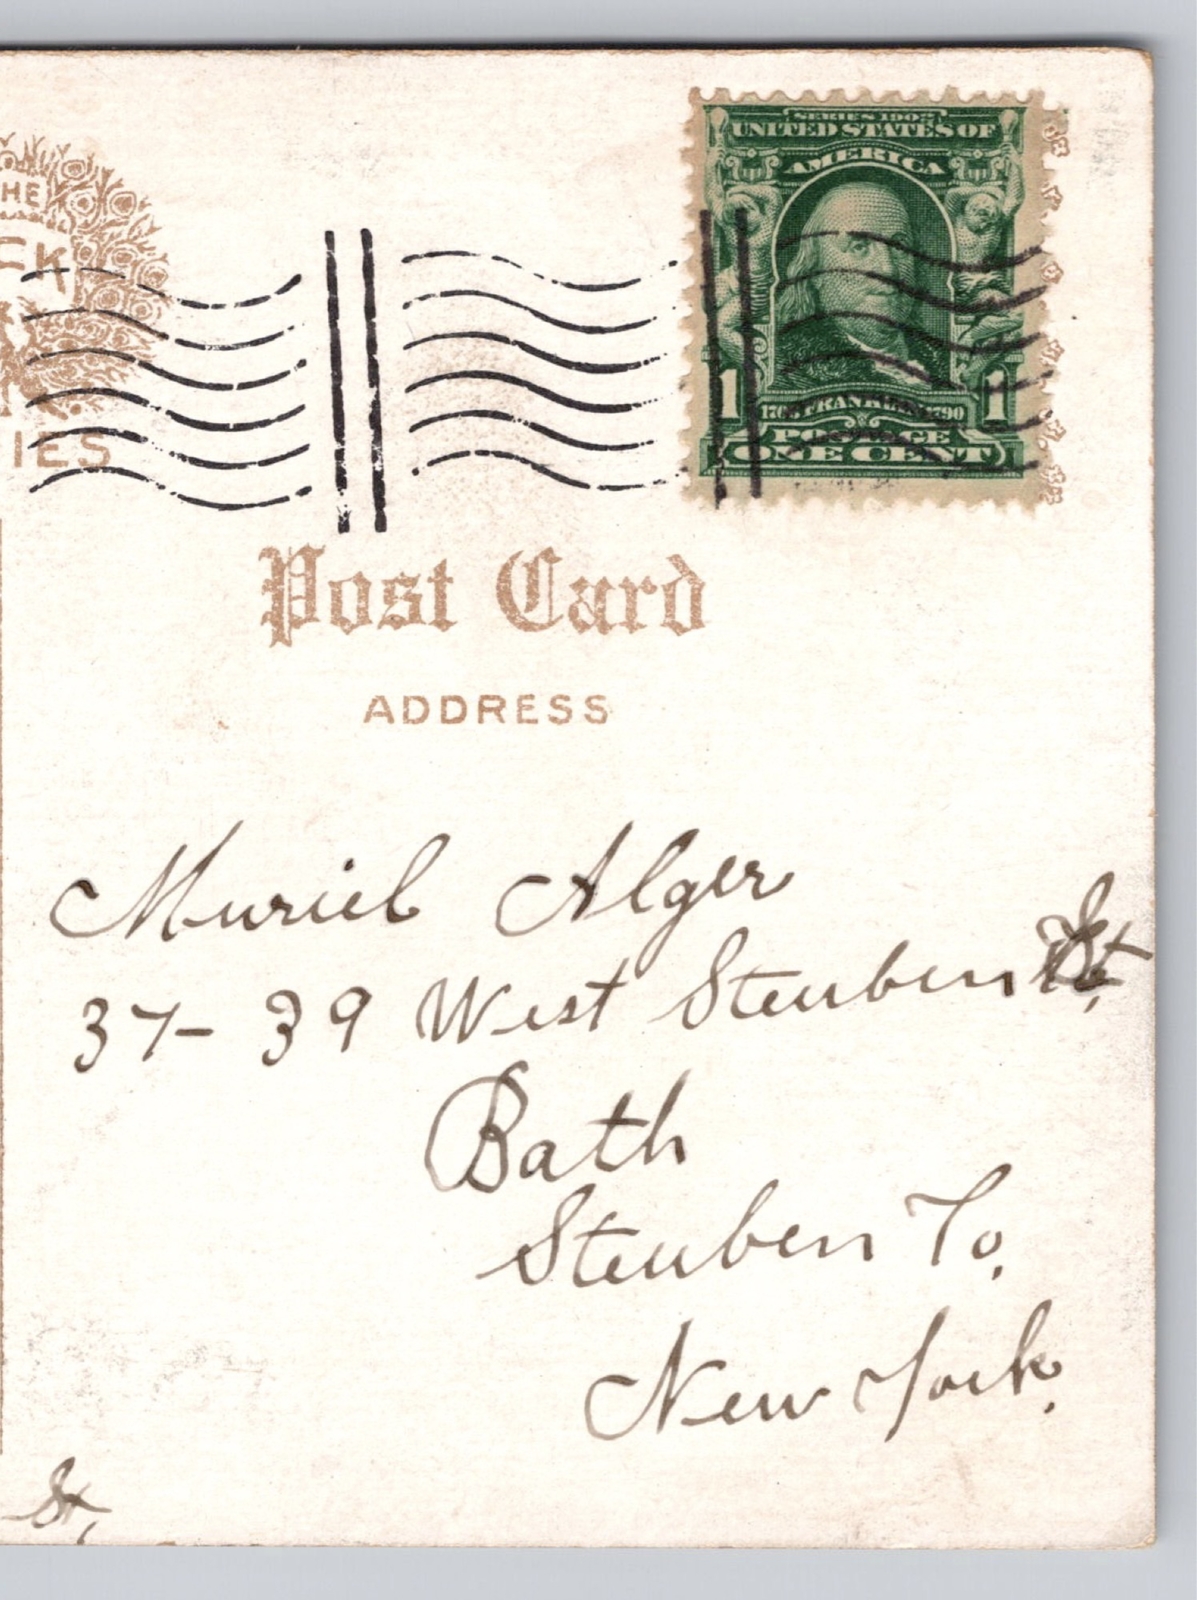 SERIES 1902
UNITED STATES OF
AMERICA
HE
CK
IES
1 1706 FRANKLIN 1790 1
POSTAGE
ONE CENT
Post Card
ADDRESS
Muriel Alger
37-39 West Steuben St,
Bath
Steuben Co,
New York.
St,